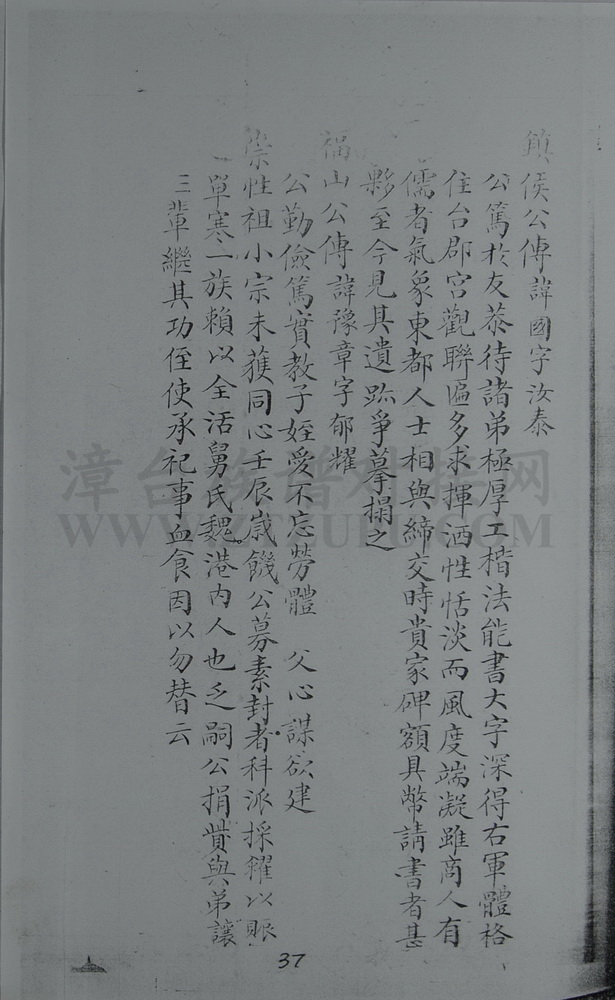 鎮侯公傳諱國字汝泰
公篤於友恭待諸弟極厚工楷法能書大字深得右軍體格
住台郡宮觀聯匾多求揮洒性恬淡而風度端凝雖商人有
儒者氣象東都人士相與締交時貴家碑額具幣請書者甚
夥至今見其遺跡爭摹搨之
福山公傳諱豫章字郁耀
公勤儉篤實教子姪愛不忘勞體 父心謀欲建
崇性祖小宗未獲同心壬辰歲饑公募素封者科派採糴以賑
單寒一族賴以全活舅氏魏港內人也乏嗣公捐貲與弟讓
三輩繼其功侄使承祀事血食因以勿替云
37
漳台族譜对接网